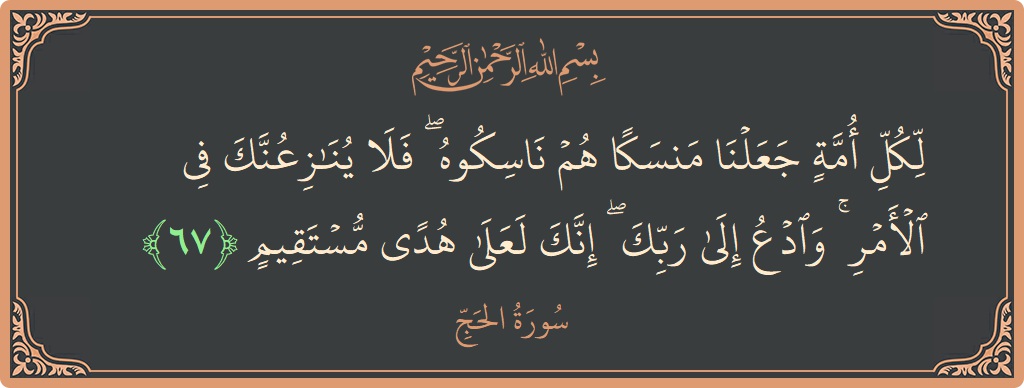 بِسْمِ اللَّهِ الرَّحْمَٰنِ الرَّحِيمِ
لِّكُلِّ أُمَّةٍ جَعَلْنَا مَنسَكًا هُمْ نَاسِكُوهُ ۖ فَلَا يُنَازِعُنَّكَ فِي
ٱلْأَمْرِ ۚ وَٱدْعُ إِلَىٰ رَبِّكَ ۖ إِنَّكَ لَعَلَىٰ هُدًى مُّسْتَقِيمٍ ﴿٦٧﴾
سُورَةُ الحَجِّ